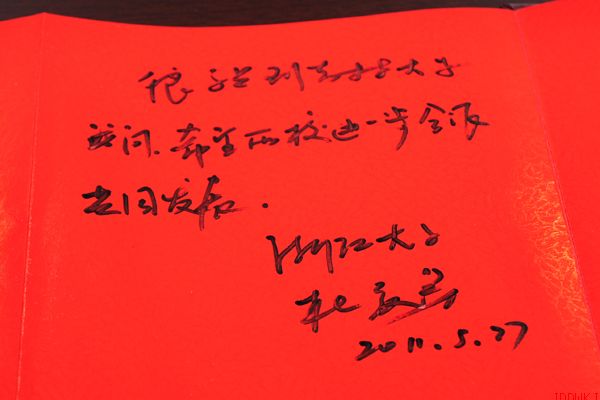 很高兴到大学
访问.希望两校进一步合作
共同发展.
浙江大学
2011.5.27